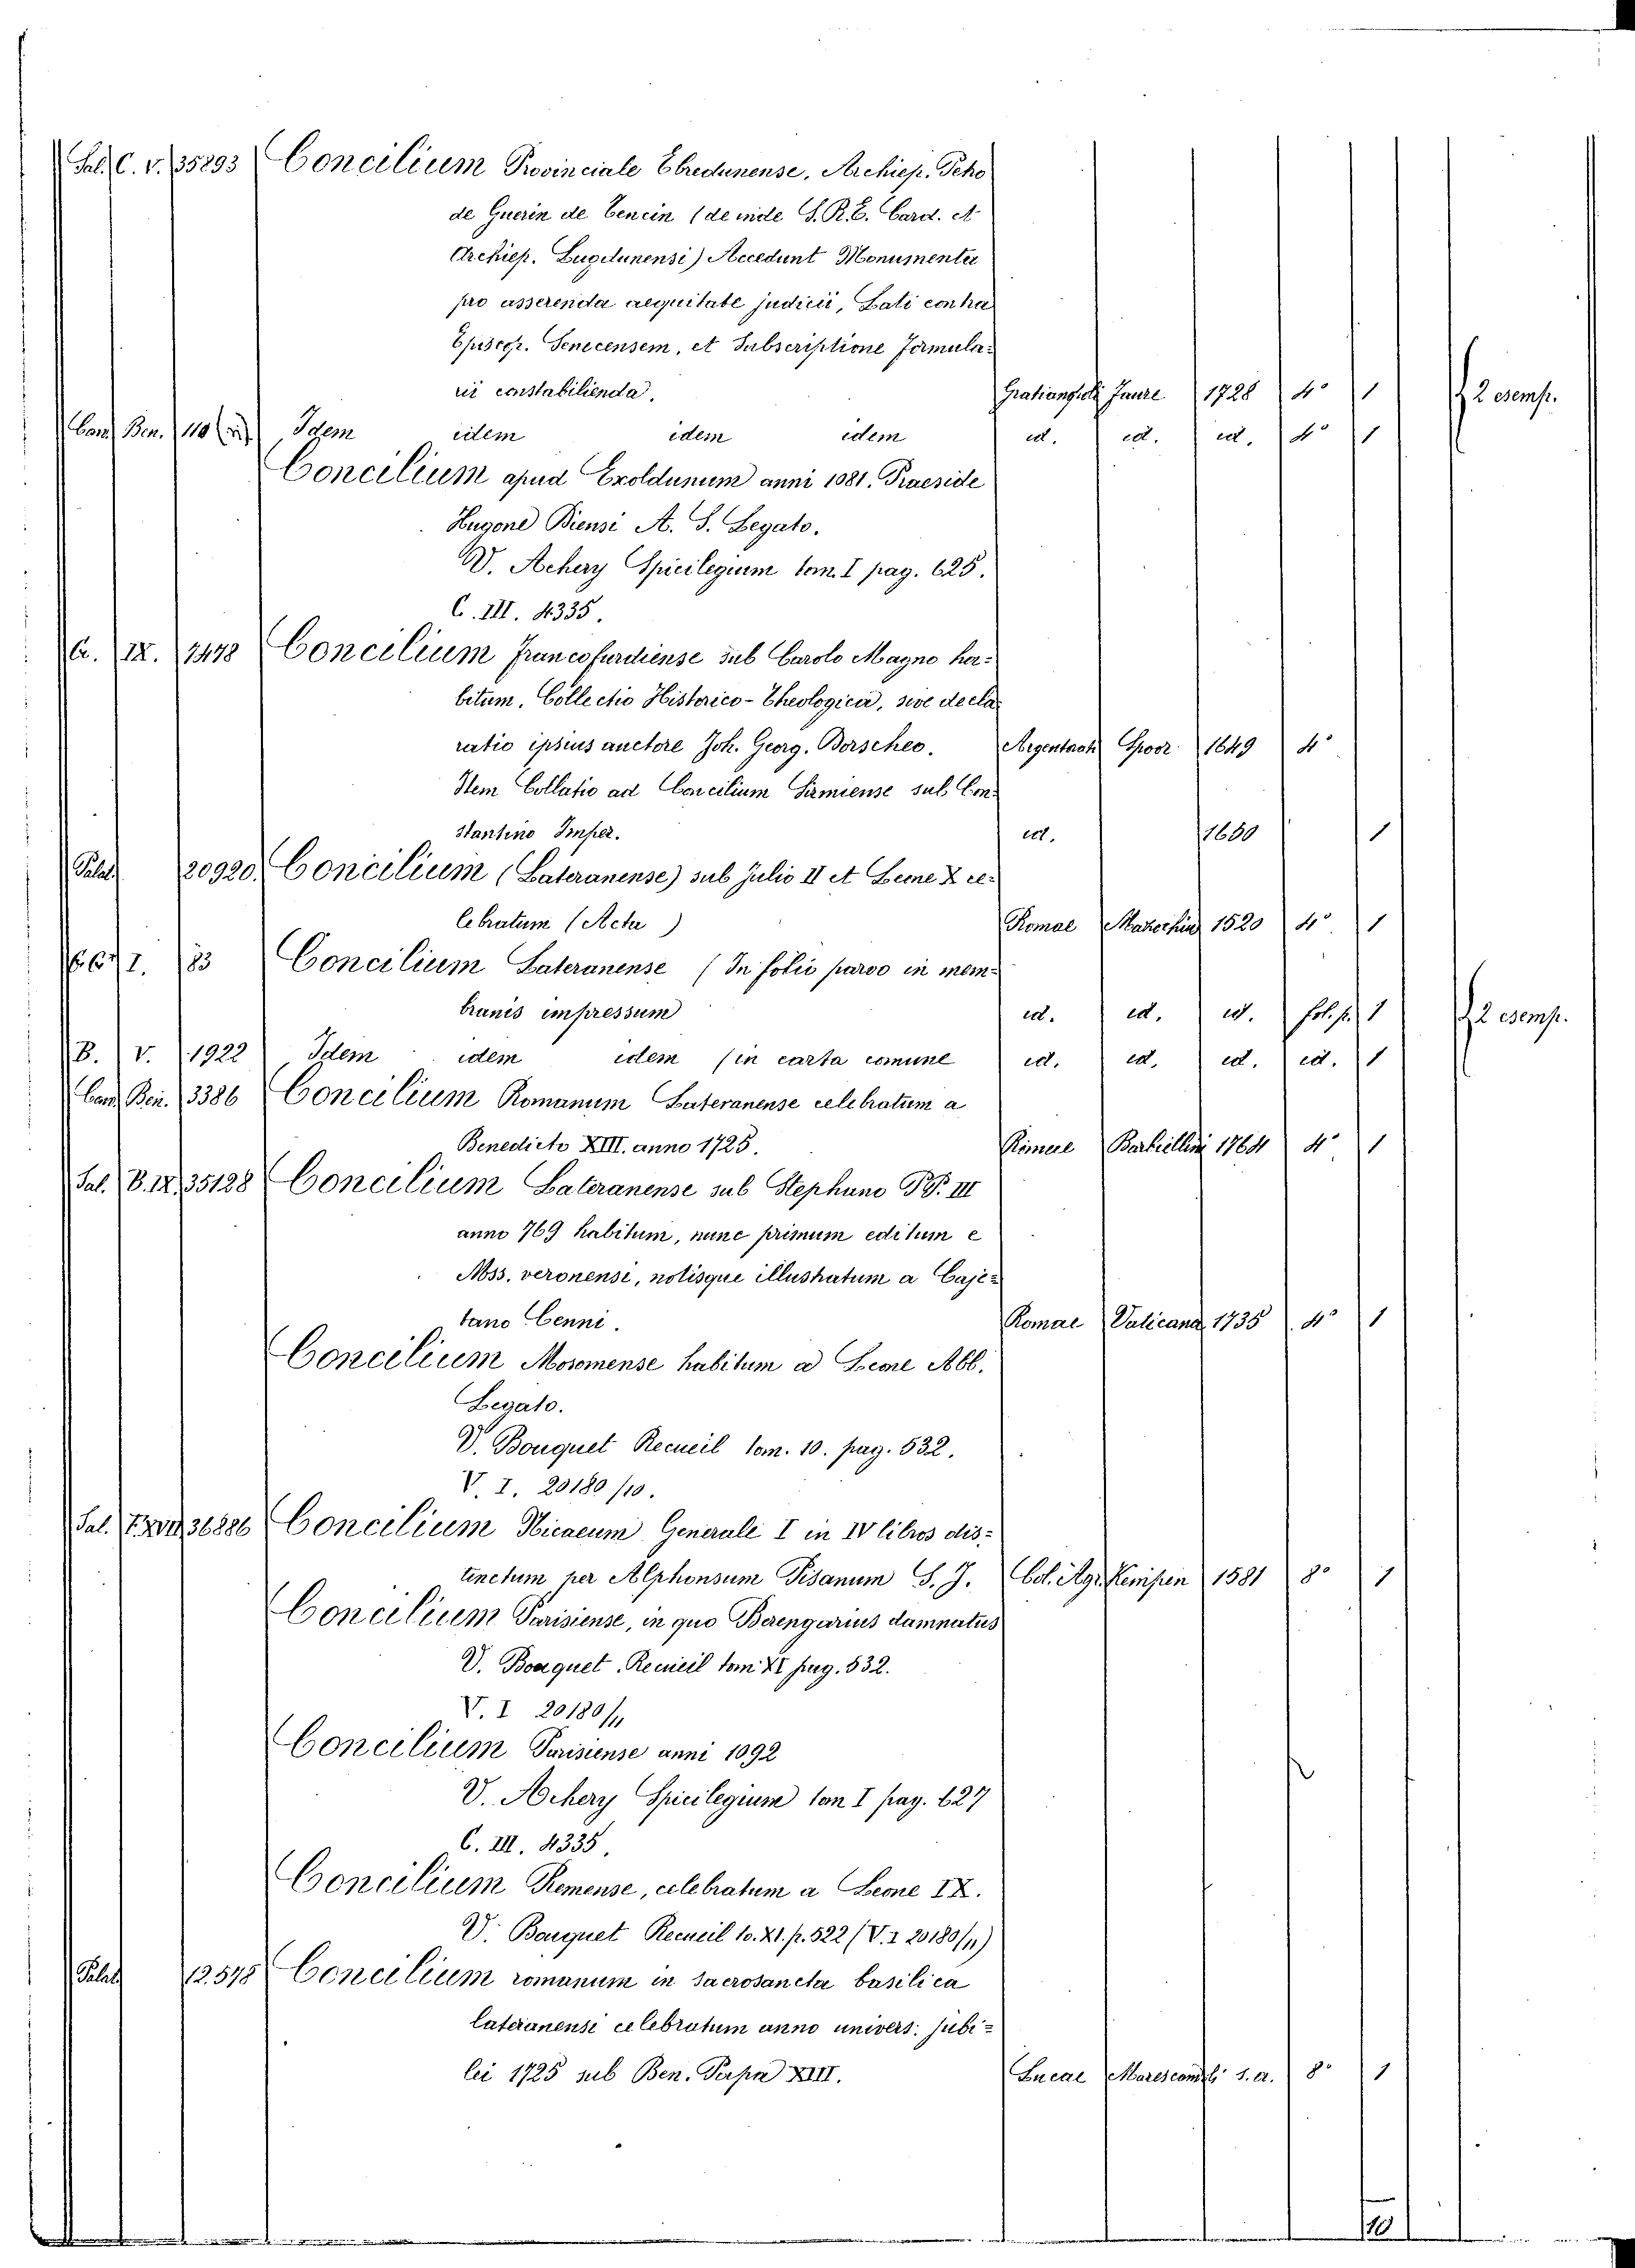 Sal. C. V. 35293 Concilium Provinciale Ebredunense, Archiep. Petro
de Guerin de Tencin (deinde S. R. E. Card. et
Archiep. Lugdunensi) Accedunt Monumenta
pro asserenda aequitate judicii, Lati contra
Episcop. Senecensem, et Subscriptione formula-
rii constabilienda. Gratianopoli Faure 1728 4° 1 2 esemp.
Ban. Ben. 110 Idem idem idem idem id. id. id. 4° 1
Concilium apud Exoldunum anni 1081. Praeside
Hugone Diensi A. S. Legato.
V. Achery Spicilegium tom. I pag. 625.
C. III. 4335.
IX. 7478 Concilium Francofurdiense sub Carolo Magno ha-
bitum. Collectio Historico-Theologica, sive decla
ratio ipsius auctore Joh. Georg. Dorscheo. Argentrat Spoor 1649 4°
Item Collatio ad Concilium Sirmiense sub Con-
stantino Imper. id. 1650 1
Palat. 20920. Concilium (Lateranense) sub Julio II et Leone X ce-
lebratum (Acta) Romae Mazochium 1520 4° 1
I. 83 Concilium Lateranense (In folio parvo in mem-
branis impressum id. id. id. fol. p. 1 2 esemp.
B. V. 1922 Idem idem idem (in carta comune id. id. id. id. 1
Ban. Ben. 3386 Concilium Romanum Lateranense celebratum a
Benedicto XIII. anno 1725. Romae Barbiellini 1764 4° 1
Sal. B. IX. 35128 Concilium Lateranense sub Stephano PP. III
anno 769 habitum, nunc primum editum e
Mss. veronensi, notisque illustratum a Caje-
tano Cenni. Romae Vaticana 1735 4° 1
Concilium Mosomense habitum a Leone Abb.
Legato.
V. Bouquet Recueil tom. 10. pag. 532.
V. I. 20180/10.
Sal. 36886 Concilium Nicaeum Generale I in IV libros dis-
tinctum per Alphonsum Pisanum S. J. Col. Agr. Kempen 1581 8° 1
Concilium Parisiense, in quo Berengarius damnatus
V. Bouquet. Recueil tom XI pag. 532.
V. I 20180/11
Concilium Parisiense anni 1092
V. Achery Spicilegium tom I pag. 627
C. III. 4335.
Concilium Remense, celebratum a Leone IX.
V. Bouquet Recueil to. XI. p. 522 (V. I 20180/11)
Palat. 12.578 Concilium romanum in Sacrosancta basilica
lateranensi celebratum anno univers: jubi-
lei 1725 sub Ben. Papa XIII. Lucae Marescandoli s. a. 8° 1
10